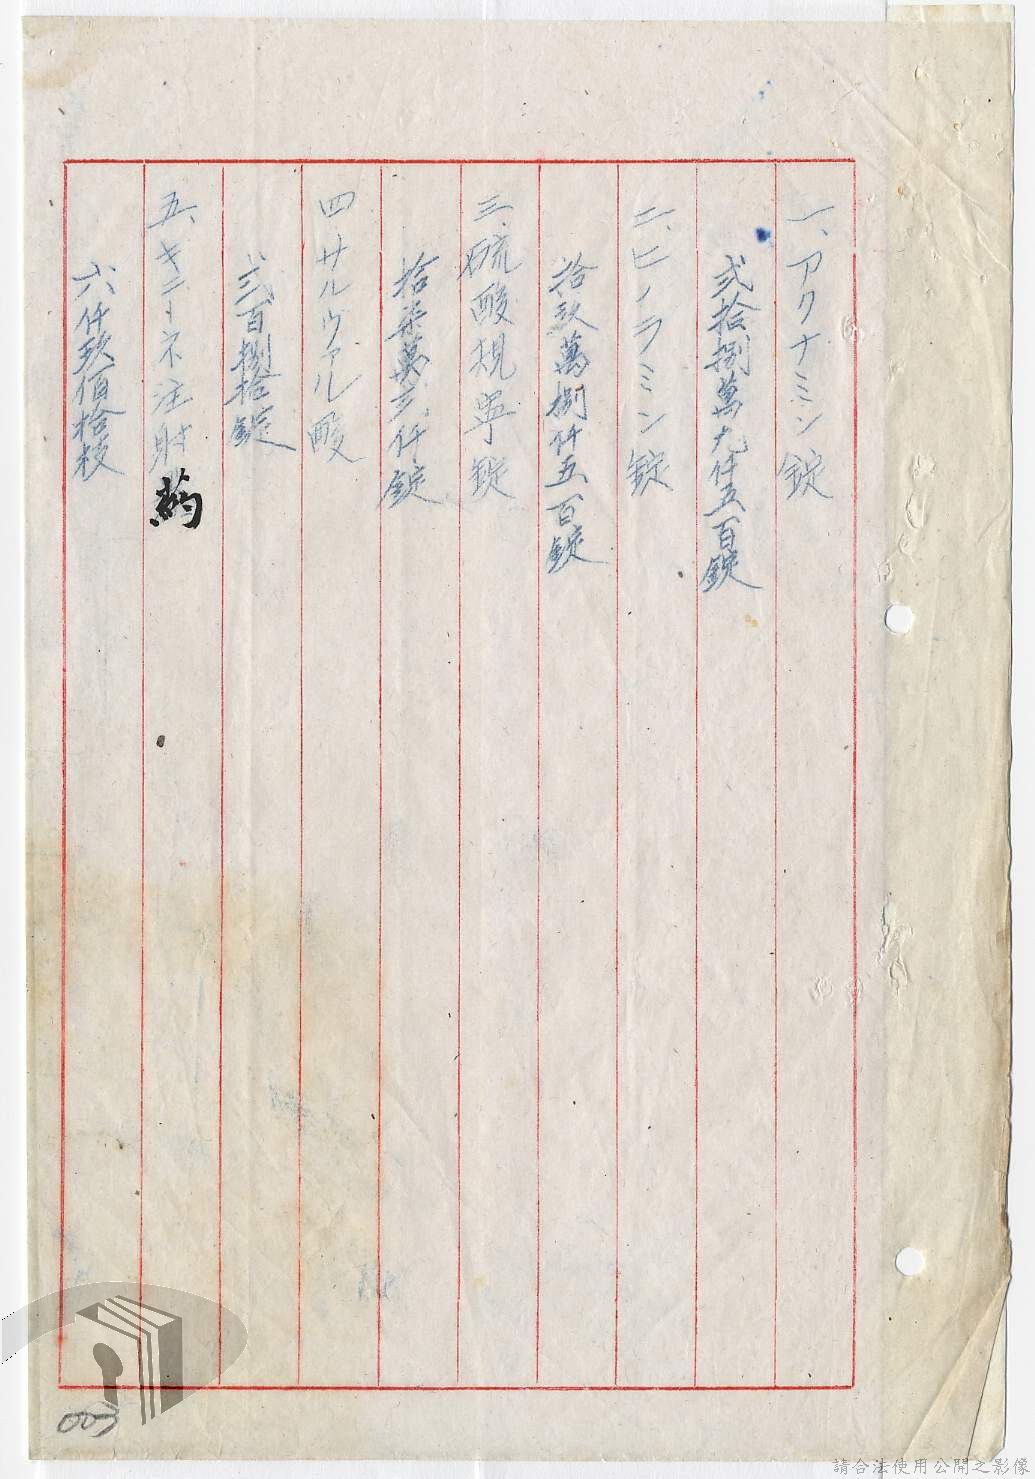 一、アクナミン錠
弐拾捌萬九仟五百錠
二、ヒノラミン錠
拾玖萬捌仟五百錠
三、硫酸規寧錠
拾柒萬三仟錠
四サルヴアル酸
弐百捌拾錠
五、キニーネ注射薬
六仟玖佰拾枝
003
請合法使用公開之影像